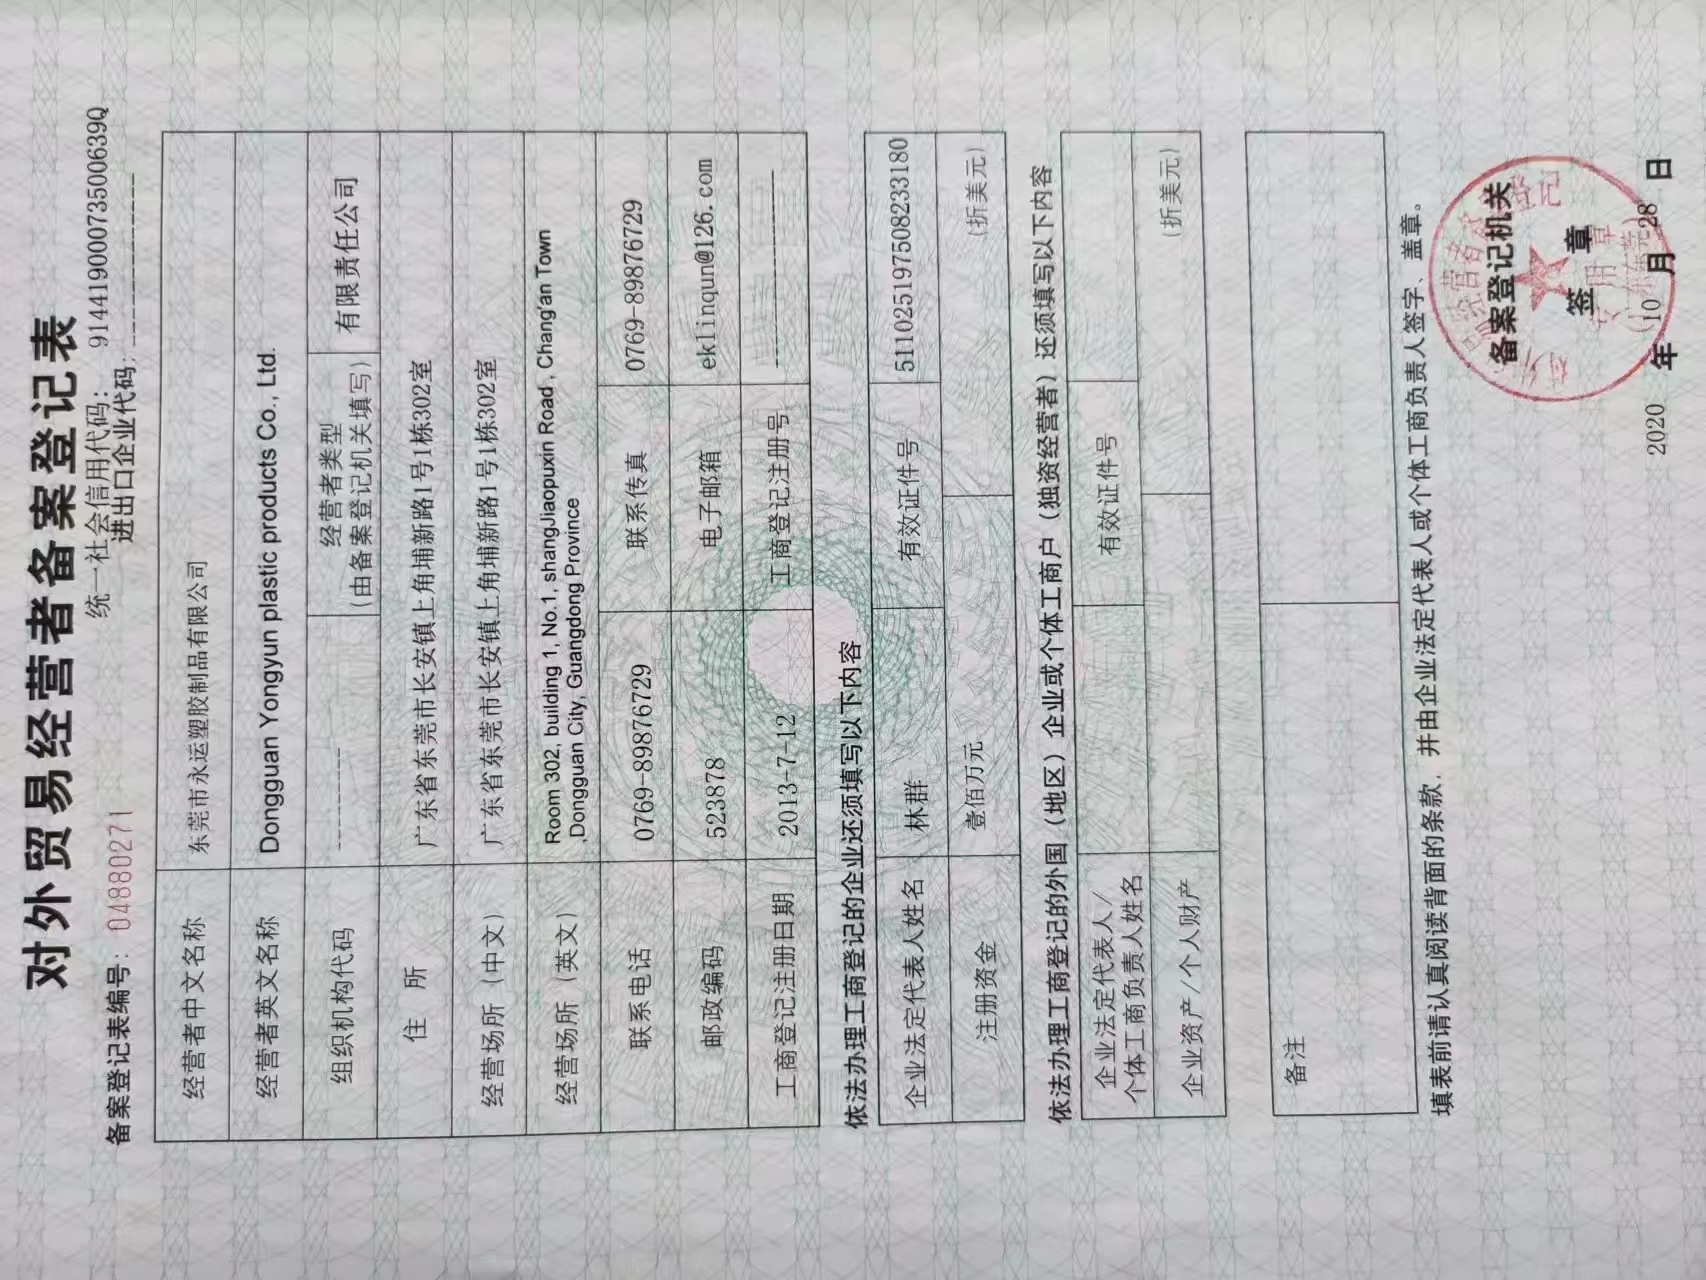 对外贸易经营者备案登记表
统一社会信用代码：91441900073500639Q
备案登记表编号：04880271 进出口企业代码：
经营者中文名称 东莞市永运塑胶制品有限公司
经营者英文名称 Dongguan Yongyun plastic products Co., Ltd.
组织机构代码 --------- 经营者类型 (由备案登记机关填写) 有限责任公司
住 所 广东省东莞市长安镇上角埔新路1号1栋302室
经营场所（中文） 广东省东莞市长安镇上角埔新路1号1栋302室
经营场所（英文） Room 302, building 1, No.1, shangJiaopuxin Road , Chang'an Town
,Dongguan City, Guangdong Province
联系电话 0769-89876729 联系传真 0769-89876729
邮政编码 523878 电子邮箱 eklinqun@126.com
工商登记注册日期 2013-7-12 工商登记注册号 ---------------
依法办理工商登记的企业还须填写以下内容
企业法定代表人姓名 林群 有效证件号 511025197508233180
注册资金 壹佰万元 (折美元)
依法办理工商登记的外国（地区）企业或个体工商户（独资经营者）还须填写以下内容
企业法定代表人/
个体工商负责人姓名 有效证件号
企业资产/个人财产 (折美元)
备注
填表前请认真阅读背面的条款，并由企业法定代表人或个体工商负责人签字、盖章。
备案登记机关
签 章
2020 年 10 月 28 日